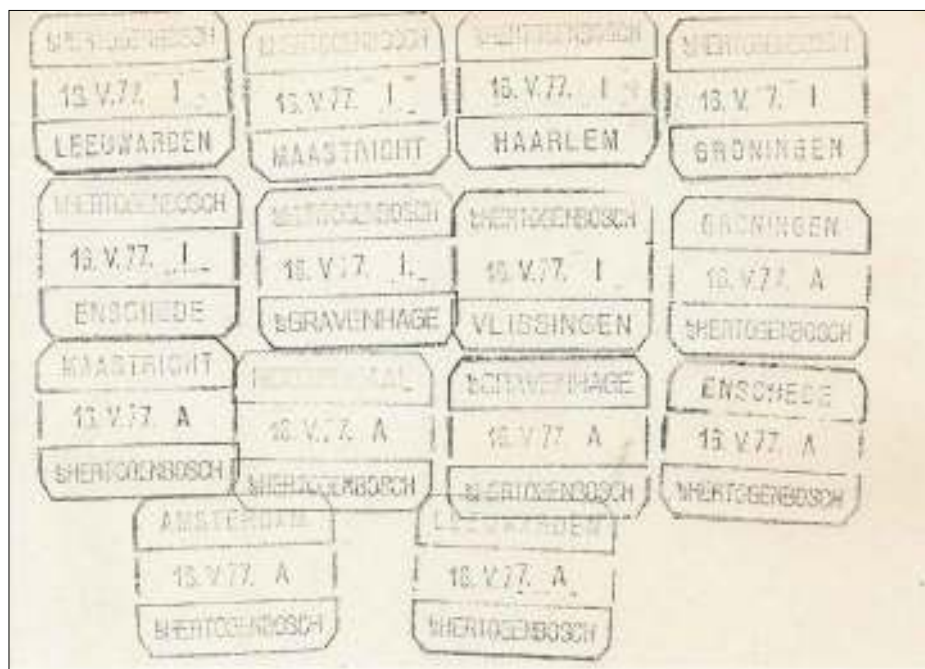 'sHERTOGENBOSCH
16. V.77. I
LEEUWARDEN
'sHERTOGENBOSCH
16. V.77. I
MAASTRICHT
'sHERTOGENBOSCH
16. V.77. I
HAARLEM
'sHERTOGENBOSCH
16. V. 7. I
GRONINGEN
'sHERTOGENBOSCH
16. V.77. I
ENSCHEDE
'sHERTOGENBOSCH
16. V.77. I
'sGRAVENHAGE
'sHERTOGENBOSCH
16. V.77. I
VLISSINGEN
GRONINGEN
16. V.77. A
'sHERTOGENBOSCH
MAASTRICHT
16. V.77. A
'sHERTOGENBOSCH
16. V.77. A
'sHERTOGENBOSCH
'sGRAVENHAGE
16. V.77. A
'sHERTOGENBOSCH
ENSCHEDE
16. V.77. A
'sHERTOGENBOSCH
AMSTERDAM
16. V.77. A
'sHERTOGENBOSCH
LEEUWARDEN
16. V.77. A
'sHERTOGENBOSCH